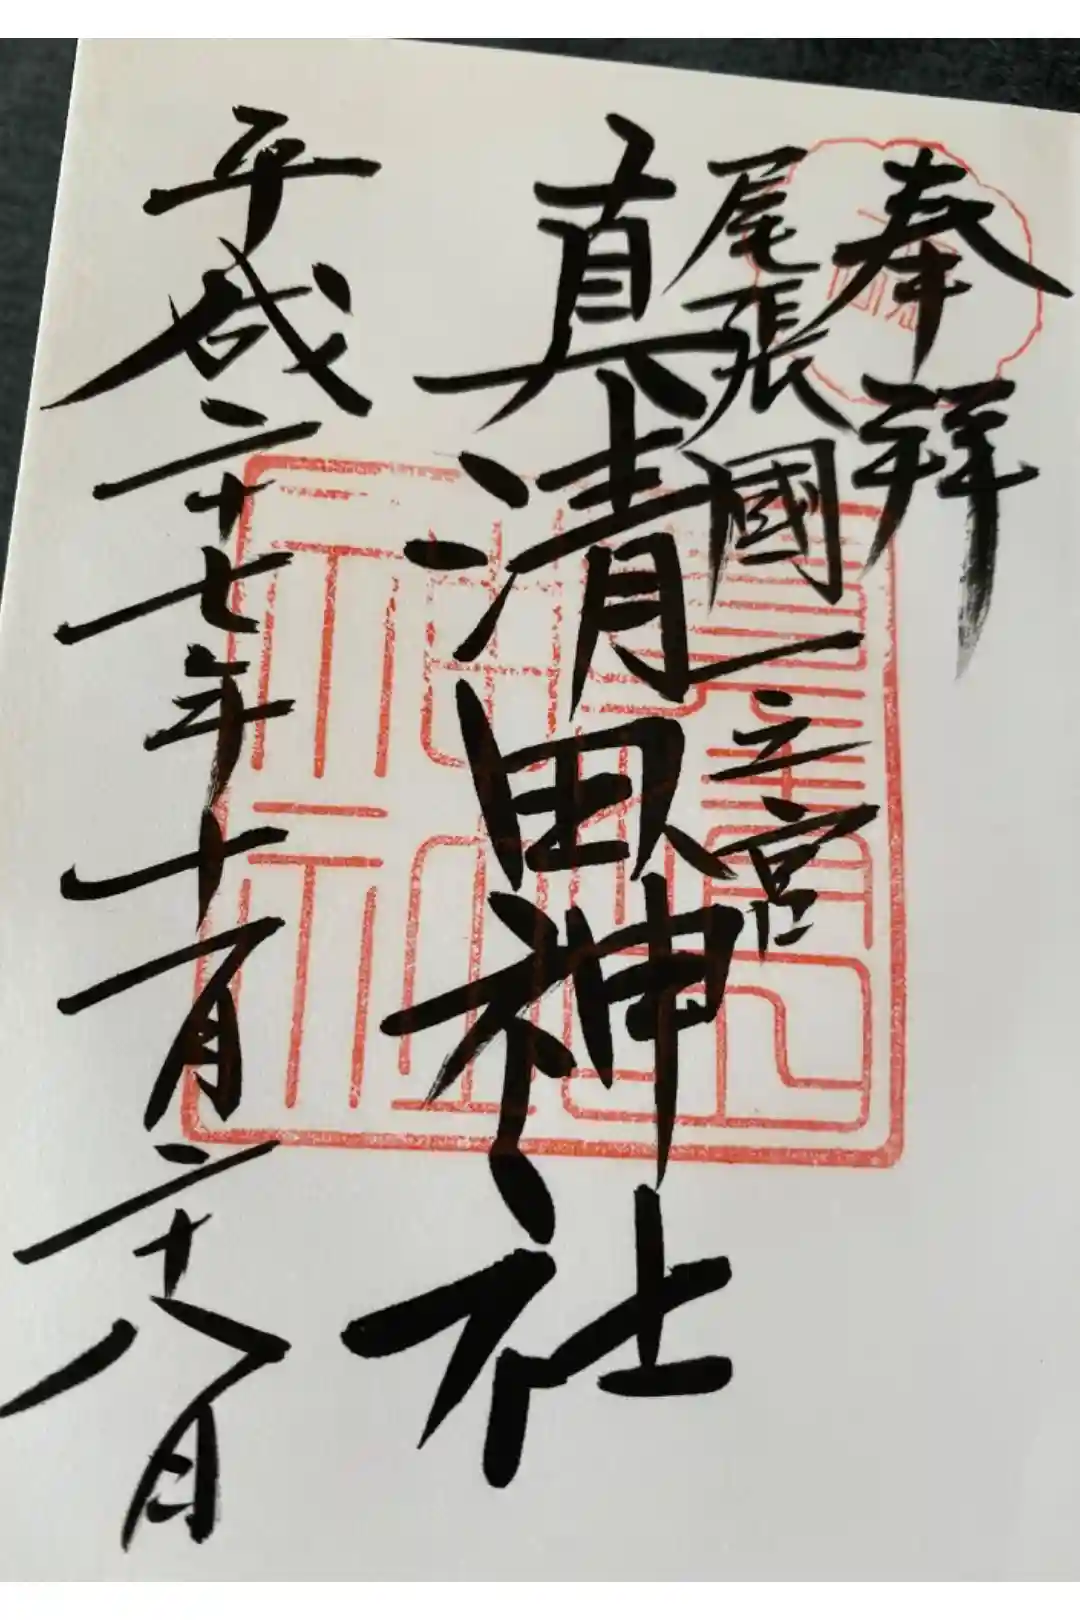 奉拝
尾張國一之宮
真清田神社
平成二十七年十一月二十八日